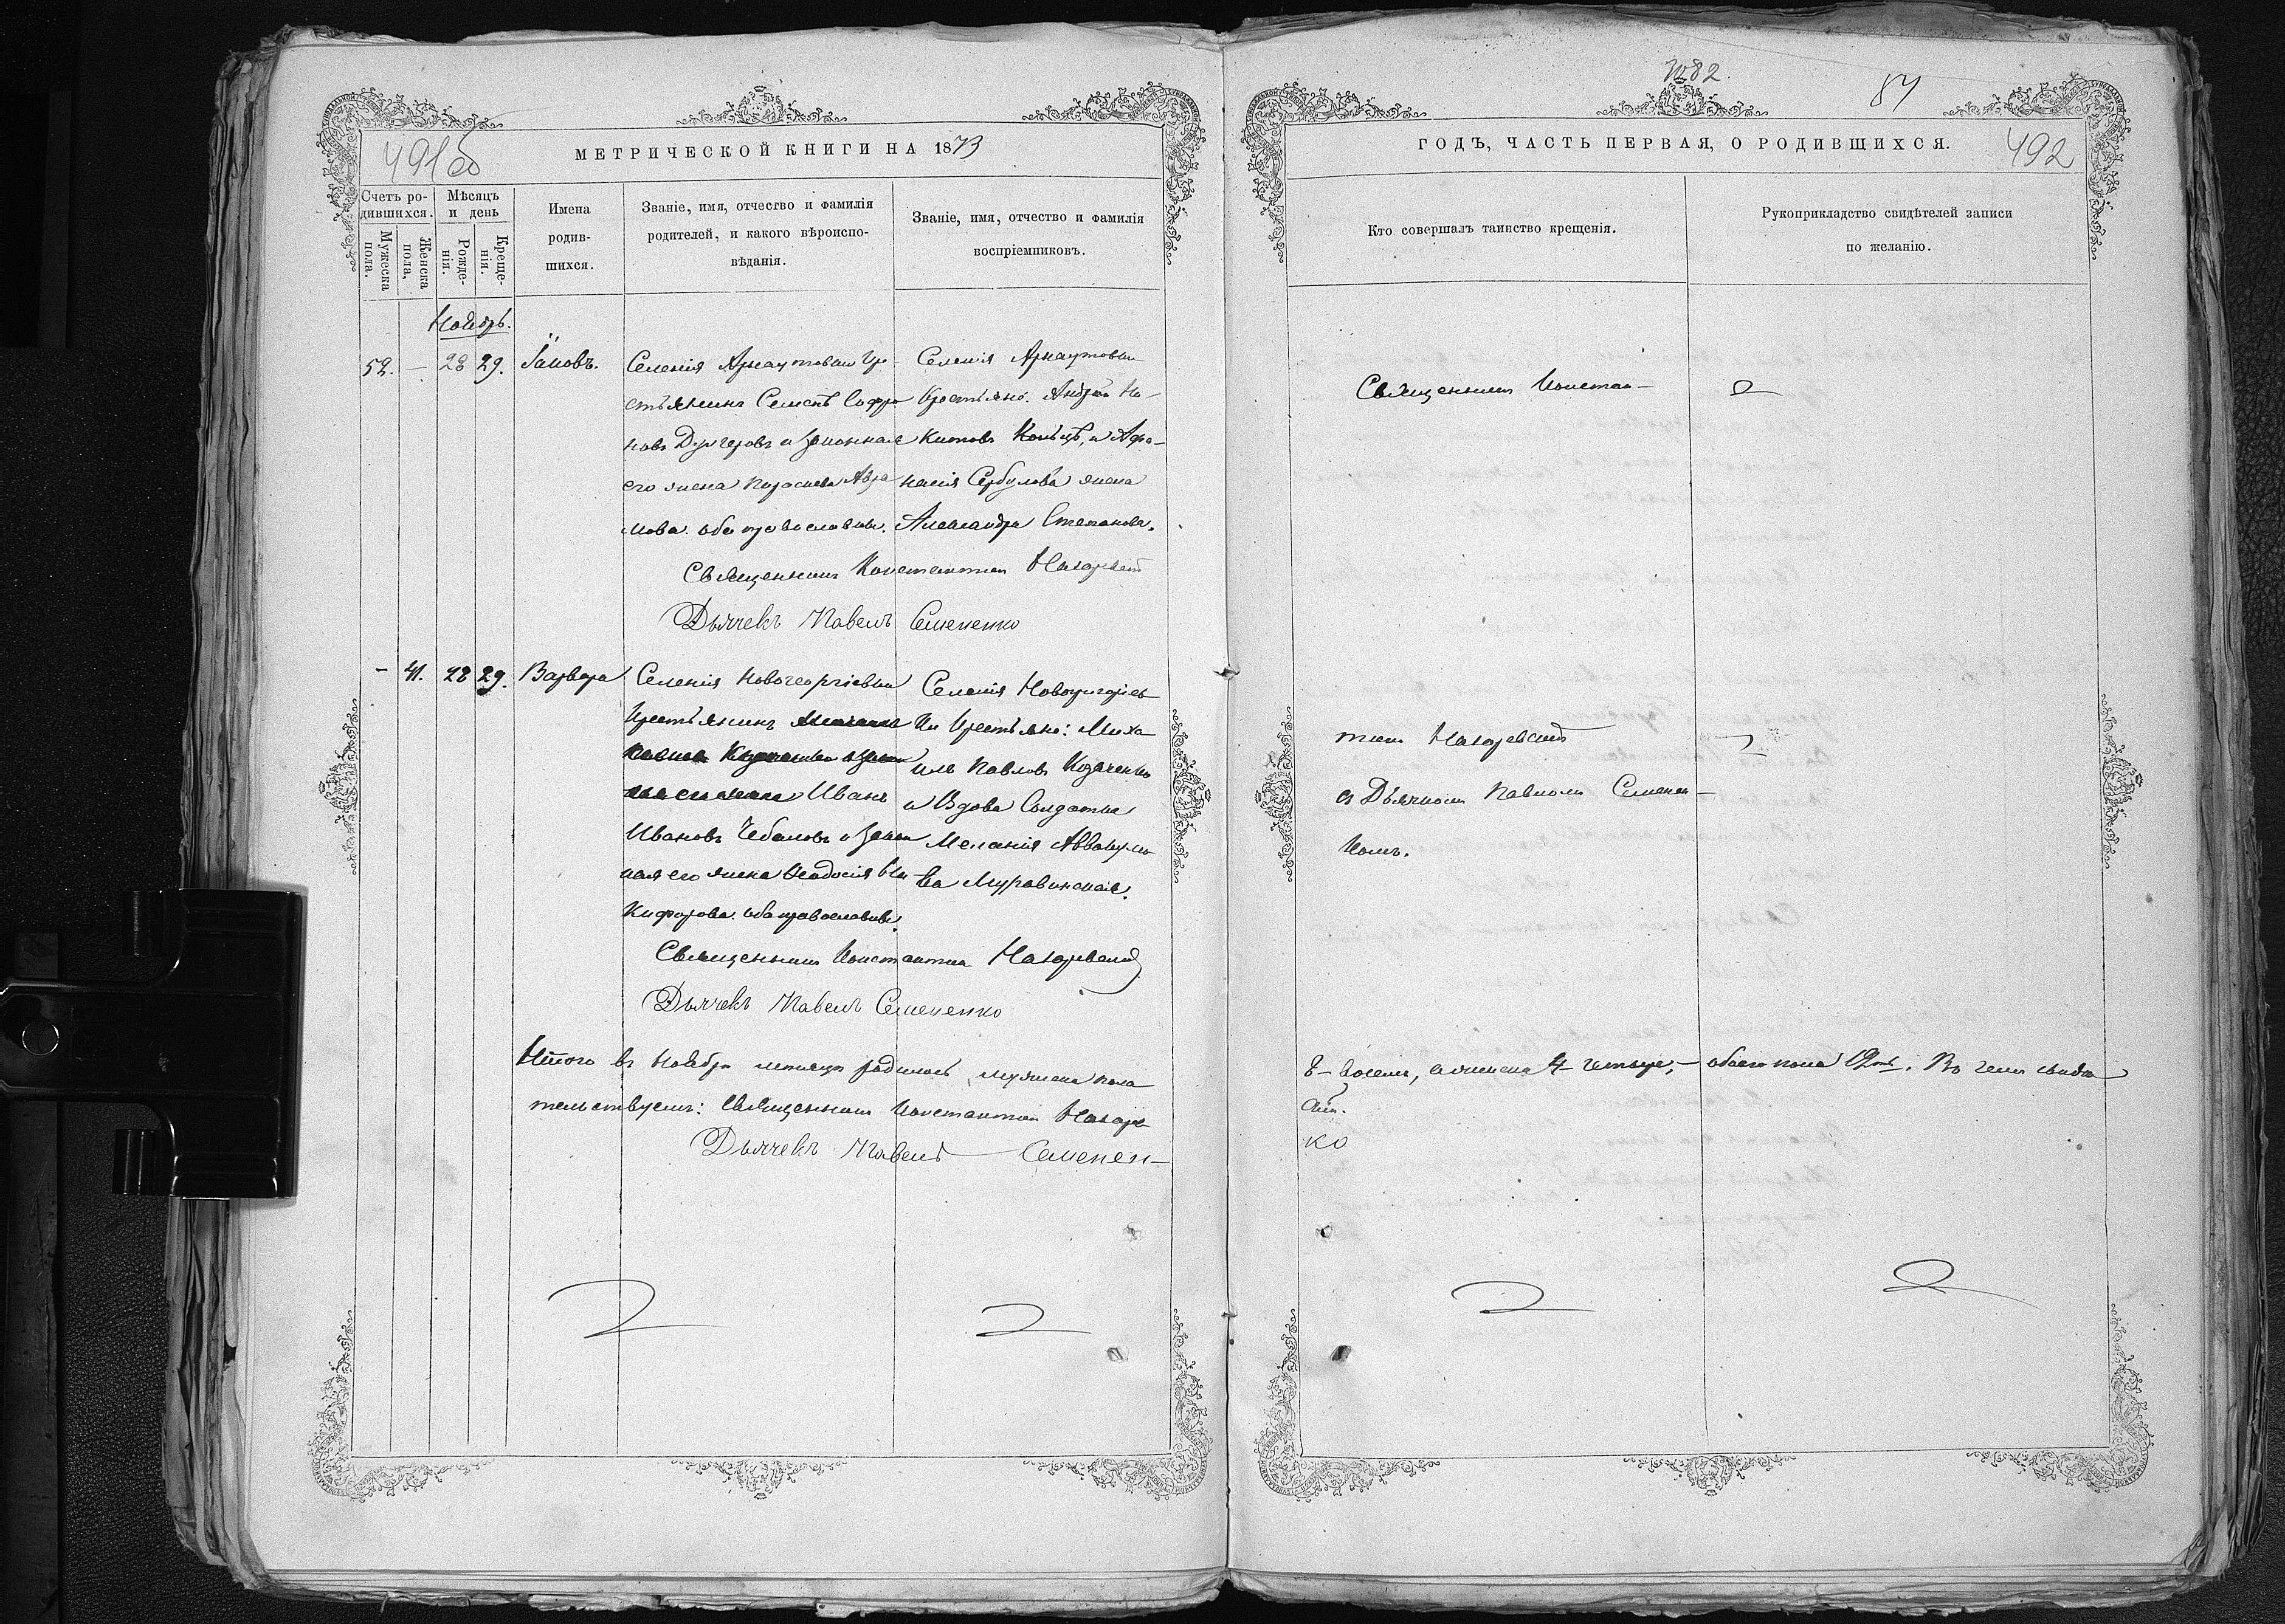 491об
МЕТРИЧЕСКОЙ КНИГИ НА 1873
Счетъ родившихся.
Мужеска пола.
Женска пола.
Мѣсяцъ и день
Рожденія.
Крещенія.
Имена
родив-
шихся.
Званіе, имя, отчество и фамилія
родителей, и какого вѣроиспо-
вѣданія.
Званіе, имя, отчество и фамилія
воспріемниковъ.
Ноябрь.
52. — 28 29. Іаковъ.
Селенія Арнаутовки Кре
стьянинъ Семенъ Софро
новъ Дулгеровъ и Законная
его жена Параскева Авра
мова. оба православны.
Селенія Арнаутовки
Крестьяне: Андрей Ни-
китовъ Копѣцъ, и Афа-
насія Сербулова жена
Александра Степанова.
Священникъ Константинъ Назаревскій
Дьячекъ Павелъ Семененко
— 41. 28 29. Варвара
Селенія Новогеоргіевки
Крестьянинъ
Иванъ
Ивановъ Чебановъ и Закон
ная его жена Ѳеодосія Ни
кифорова. оба православные.
Селенія Новогригорьев
ки Крестьяне: Миха
илъ Павловъ Козаченко
и Вдова Солдатка
Меланія Аввакумо
ва Муравинская.
Священникъ Константинъ Назаревскій
Дьячекъ Павелъ Семененко
Итого въ Ноябрѣ мѣсяцѣ родилось мужеска пола
тельствуемъ: Священникъ Константинъ Назарев
Дьячекъ Павелъ Семенен-
82
87
492
ГОДЪ, ЧАСТЬ ПЕРВАЯ, О РОДИВШИХСЯ.
Кто совершалъ таинство крещенія.
Рукоприкладство свидѣтелей записи
по желанію.
Священникъ Констан-
тинъ Назаревскій
съ Дьячкомъ Павломъ Семенен-
комъ.
8 - восемь, а женска 4 четыре, - обоего пола 12ть. Въ чемъ свидѣ
скій.
ко